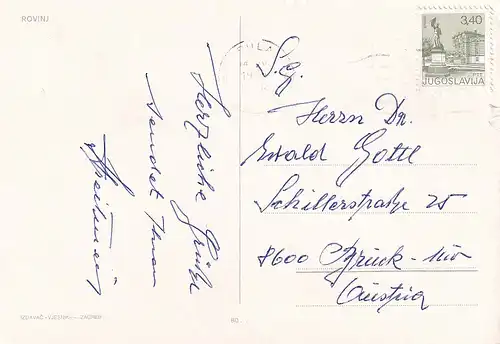 ROVINJ
Herzliche Grüße
sendet Ihnen
PULA
3,40
JUGOSLAVIJA
S.g.
Herrn Dr.
Ewald Gottl
Schillerstraße 25
8600 Bruck-Mur
Austria
IZDAVAČ »VJESNIK« — ZAGREB